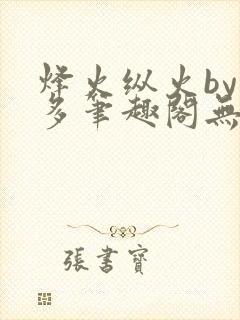 烽火纵火by
多筆趣閣無
張書寶